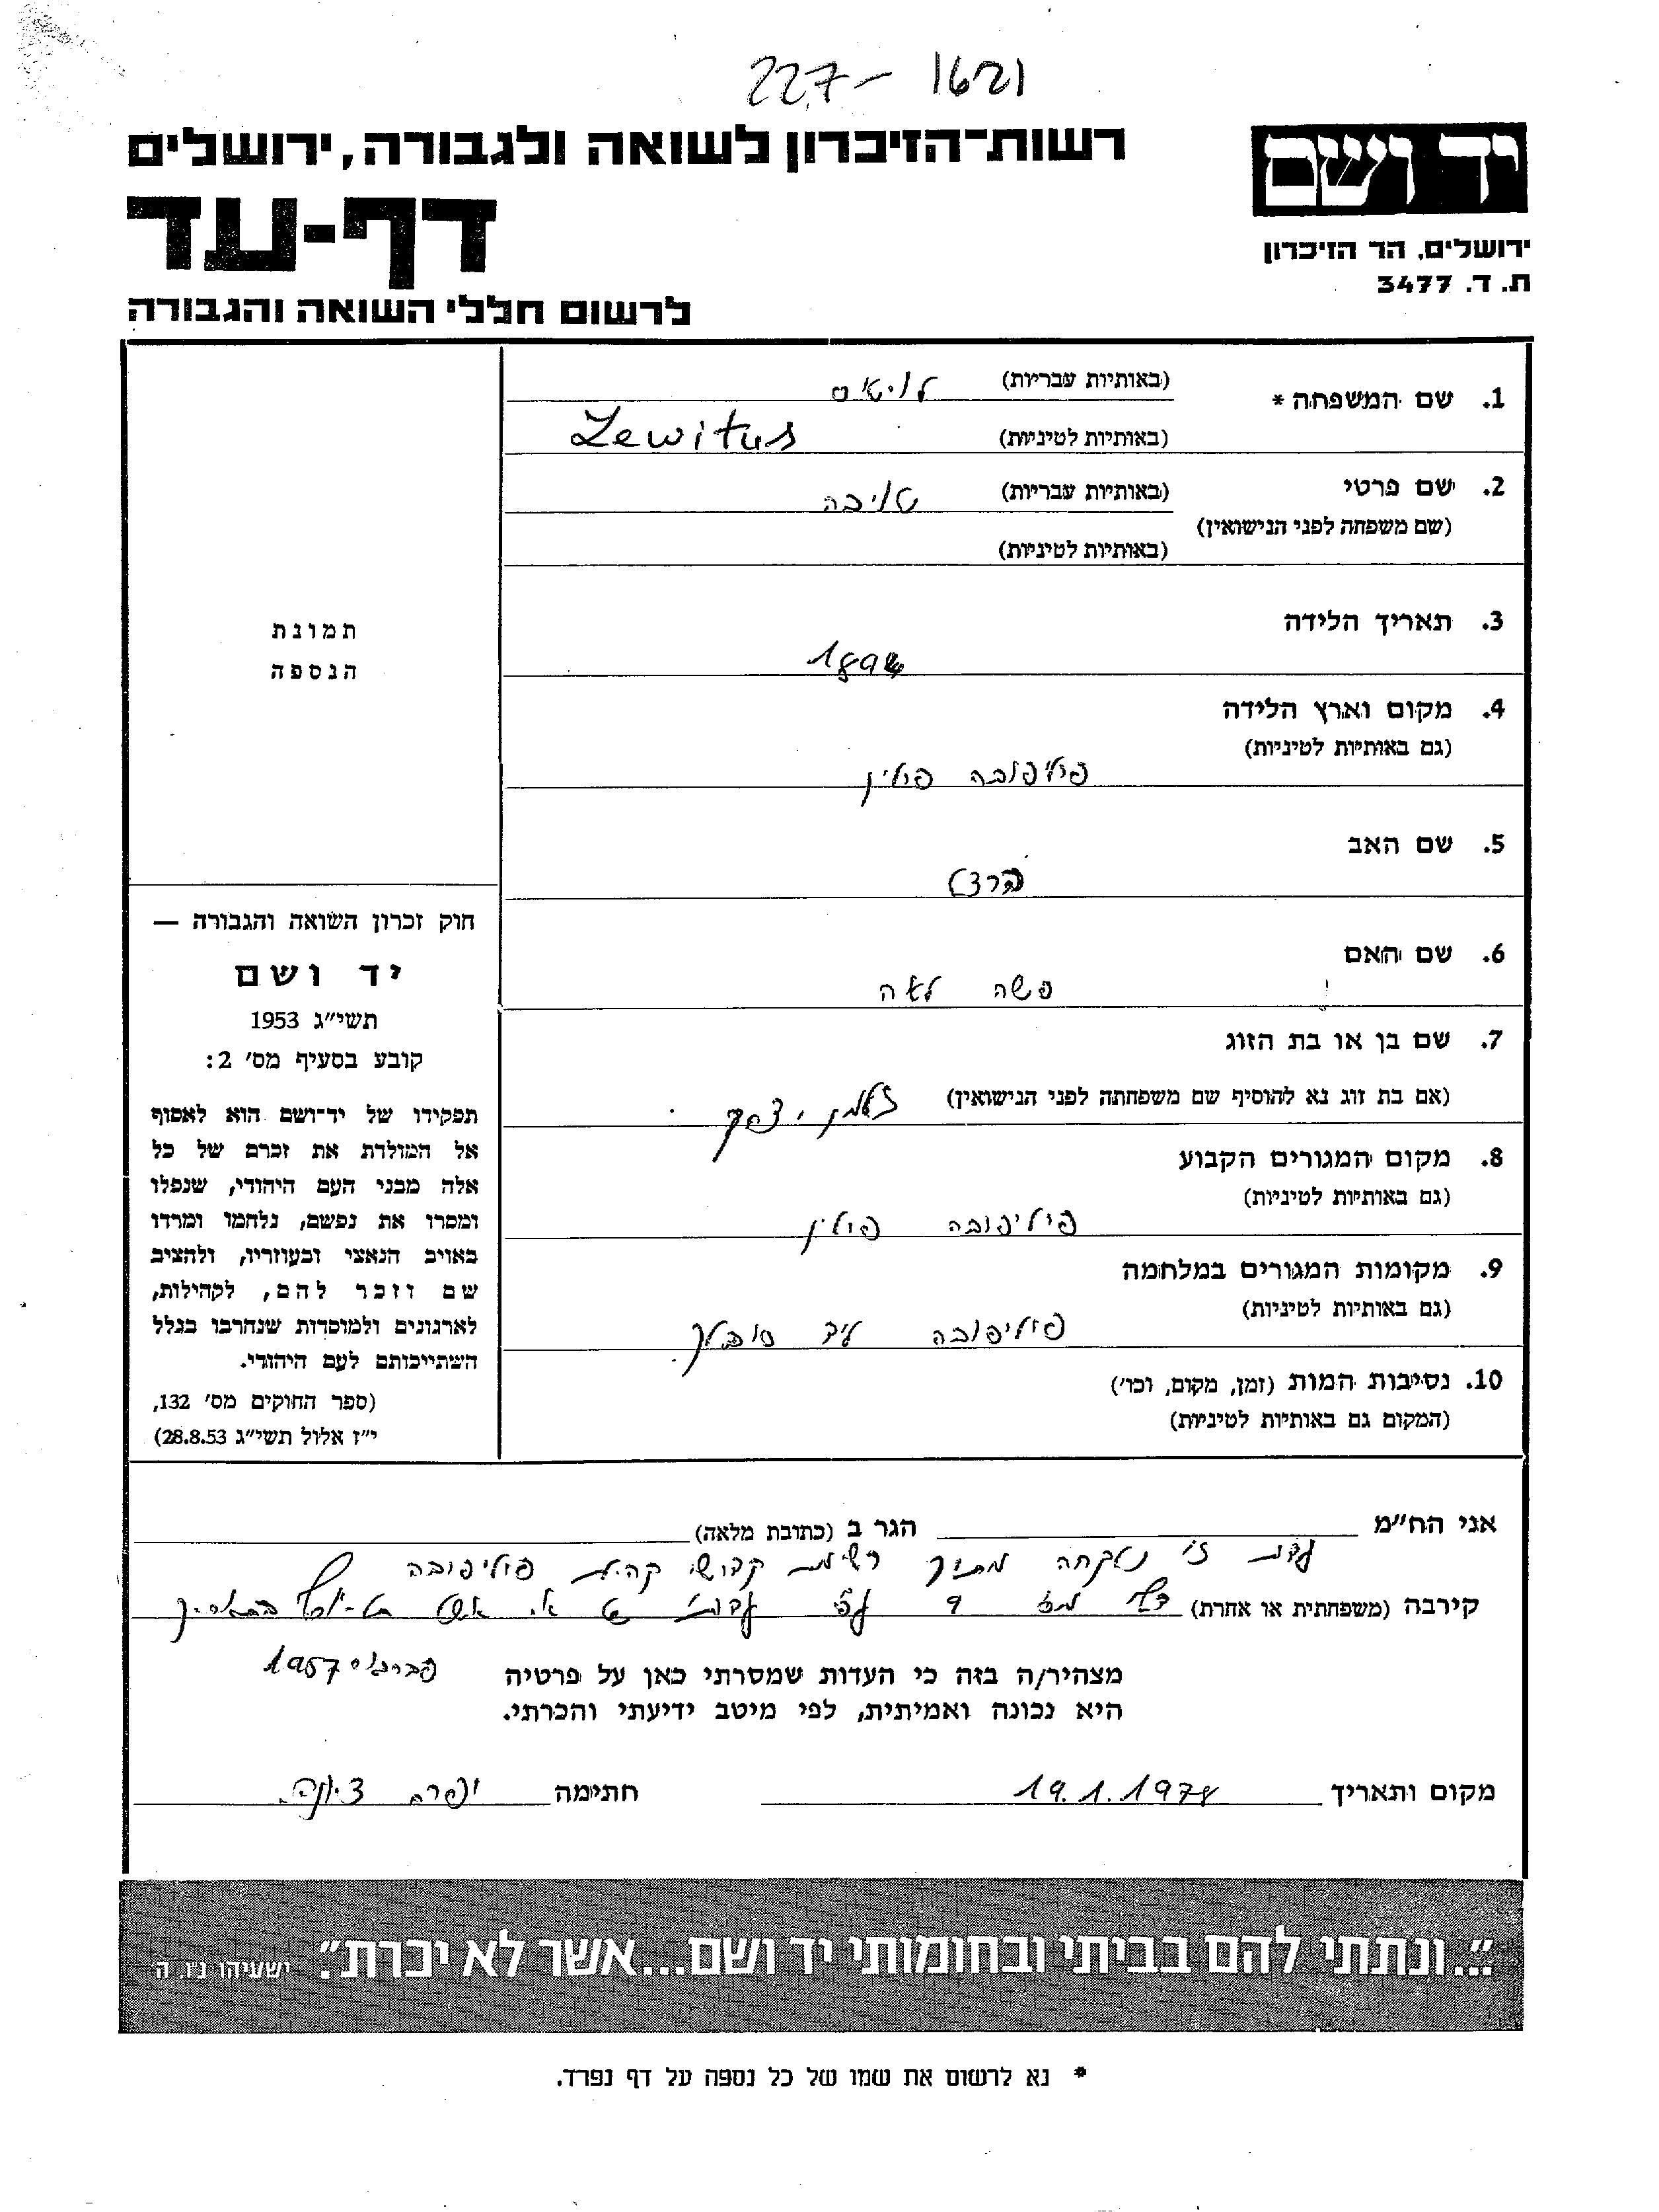 227- 1621
רשות־הזיכרון לשואה ולגבורה, ירושלים
יד ושם
דף-עד
ירושלים, הר הזיכרון
ת. ד. 3477
לרשום חללי השואה והגבורה
1. שם המשפחה * (באותיות עבריות)
(באותיות לטיניות) Lewitus
2. שם פרטי (באותיות עבריות) טויבה
(שם משפחה לפני הנישואין)
(באותיות לטיניות)
3. תאריך הלידה
4. מקום וארץ הלידה
(גם באותיות לטיניות)
פיליפובה פולין
5. שם האב
6. שם האם
לאה
7. שם בן או בת הזוג
(אם בת זוג נא להוסיף שם משפחתה לפני הנישואין) זלמן יצחק
8. מקום המגורים הקבוע
(גם באותיות לטיניות)
פיליפובה פולין
9. מקומות המגורים במלחמה
(גם באותיות לטיניות)
פיליפובה ליד סובלק
10. נסיבות המות (זמן, מקום, וכו')
(המקום גם באותיות לטיניות)
תמונת
הנספה
חוק זכרון השואה והגבורה —
יד ושם
תשי״ג 1953
קובע בסעיף מס' 2:
תפקידו של יד־ושם הוא לאסוף
אל המולדת את זכרם של כל
אלה מבני העם היהודי, שנפלו
ומסרו את נפשם, נלחמו ומרדו
באויב הנאצי ובעוזריו, ולהציב
שם וזכר להם, לקהילות,
לארגונים ולמוסדות שנחרבו בגלל
השתייכותם לעם היהודי.
(ספר החוקים מס' 132,
י״ז אלול תשי״ג 28.8.53)
אני הח״מ הגר ב (כתובת מלאה)
עדות זו נלקחה מתוך רשימת קדושי קהילת פיליפובה
קירבה (משפחתית או אחרת) דף מס 9 עפ״י
מצהיר/ה בזה כי העדות שמסרתי כאן על פרטיה פברואר 1957
היא נכונה ואמיתית, לפי מיטב ידיעתי והכרתי.
מקום ותאריך 19.1.1978 חתימה
״...ונתתי להם בביתי ובחומותי יד ושם...אשר לא יכרת״. ישעיהו נ״ו, ה
* נא לרשום את שמו של כל נספה על דף נפרד.